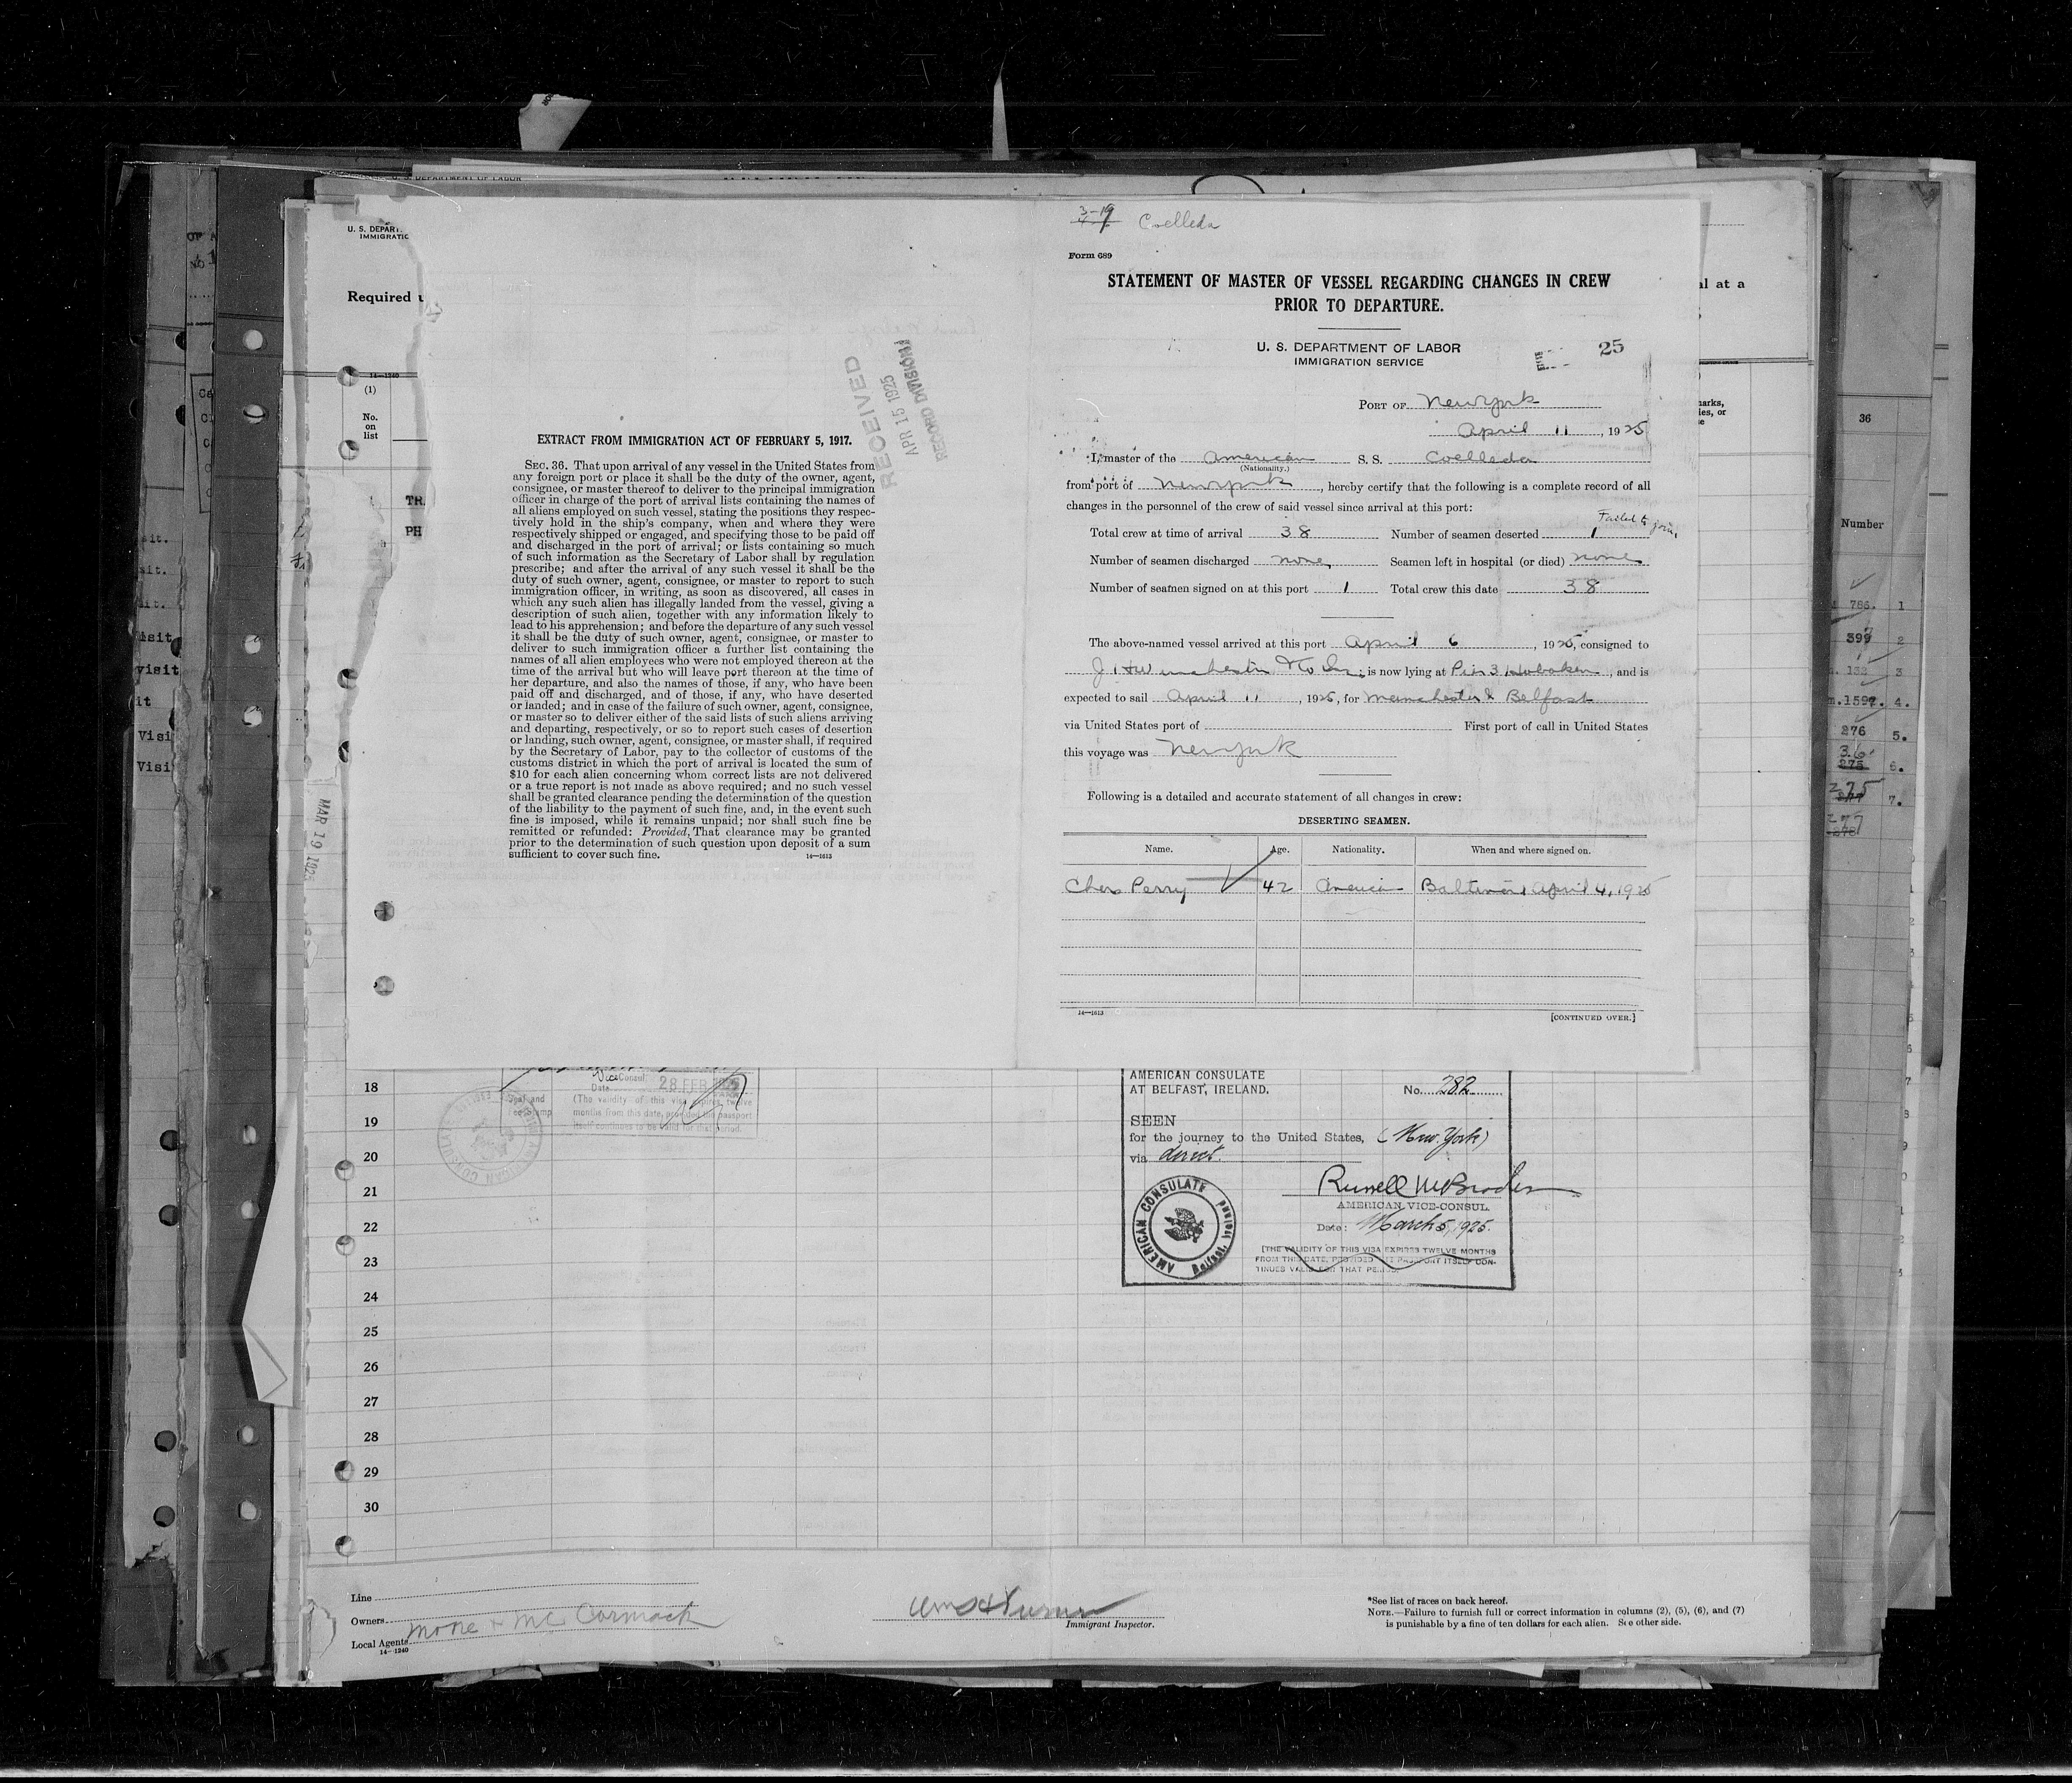 3-19 Coelleda
Form 689
STATEMENT OF MASTER OF VESSEL REGARDING CHANGES IN CREW
PRIOR TO DEPARTURE.
U. S. DEPARTMENT OF LABOR
IMMIGRATION SERVICE
25
PORT OF New York
April 11, 1925
I, master of the American S. S. Coelleda
(Nationality.)
from port of New York, hereby certify that the following is a complete record of all
changes in the personnel of the crew of said vessel since arrival at this port:
Failed to join,
Total crew at time of arrival 38 Number of seamen deserted 1
Number of seamen discharged none Seamen left in hospital (or died) none
Number of seamen signed on at this port 1 Total crew this date 38
The above-named vessel arrived at this port April 6, 1925, consigned to
J. H Winchester & Co Inc; is now lying at Pier 3 Hoboken, and is
expected to sail April 11, 1925, for Manchester & Belfast
via United States port of First port of call in United States
this voyage was New York
Following is a detailed and accurate statement of all changes in crew:
DESERTING SEAMEN.
Name. Age. Nationality. When and where signed on.
Chas Perry 42 American Baltimore April 4, 1925
14—1613
[CONTINUED OVER.]
U. S. DEPAR
IMMIGRATIC
Required u
14—1240
(1)
No.
on
list
TR.
PH
RECEIVED
APR 15 1925
RECORD DIVISION
EXTRACT FROM IMMIGRATION ACT OF FEBRUARY 5, 1917.
SEC. 36. That upon arrival of any vessel in the United States from
any foreign port or place it shall be the duty of the owner, agent,
consignee, or master thereof to deliver to the principal immigration
officer in charge of the port of arrival lists containing the names of
all aliens employed on such vessel, stating the positions they respec-
tively hold in the ship's company, when and where they were
respectively shipped or engaged, and specifying those to be paid off
and discharged in the port of arrival; or lists containing so much
of such information as the Secretary of Labor shall by regulation
prescribe; and after the arrival of any such vessel it shall be the
duty of such owner, agent, consignee, or master to report to such
immigration officer, in writing, as soon as discovered, all cases in
which any such alien has illegally landed from the vessel, giving a
description of such alien, together with any information likely to
lead to his apprehension; and before the departure of any such vessel
it shall be the duty of such owner, agent, consignee, or master to
deliver to such immigration officer a further list containing the
names of all alien employees who were not employed thereon at the
time of the arrival but who will leave port thereon at the time of
her departure, and also the names of those, if any, who have been
paid off and discharged, and of those, if any, who have deserted
or landed; and in case of the failure of such owner, agent, consignee,
or master so to deliver either of the said lists of such aliens arriving
and departing, respectively, or so to report such cases of desertion
or landing, such owner, agent, consignee, or master shall, if required
by the Secretary of Labor, pay to the collector of customs of the
customs district in which the port of arrival is located the sum of
$10 for each alien concerning whom correct lists are not delivered
or a true report is not made as above required; and no such vessel
shall be granted clearance pending the determination of the question
of the liability to the payment of such fine, and, in the event such
fine is imposed, while it remains unpaid; nor shall such fine be
remitted or refunded: Provided, That clearance may be granted
prior to the determination of such question upon deposit of a sum
sufficient to cover such fine.
14—1613
MAR 19 1925
al at a
Number
36
Vice Consul
Date 28 FEB
(The validity of this visa expires twelve
months from this date, provided the passport
itself continues to be valid for that period.
AMERICAN CONSULATE
AT BELFAST, IRELAND.
No. 282
SEEN
for the journey to the United States, (New York)
via direct.
AMERICAN VICE-CONSUL.
Date: March 5, 1925.
[THE VALIDITY OF THIS VISA EXPIRES TWELVE MONTHS
FROM THIS DATE, PROVIDED THE PASSPORT ITSELF CON-
TINUES VALID FOR THAT PERIOD.
AMERICAN CONSULATE
Belfast, Ireland
18
19
20
21
22
23
24
25
26
27
28
29
30
Line
Owners
Moore & McCormack
Local Agents
14—1240
Immigrant Inspector.
*See list of races on back hereof.
NOTE.—Failure to furnish full or correct information in columns (2), (5), (6), and (7)
is punishable by a fine of ten dollars for each alien. See other side.